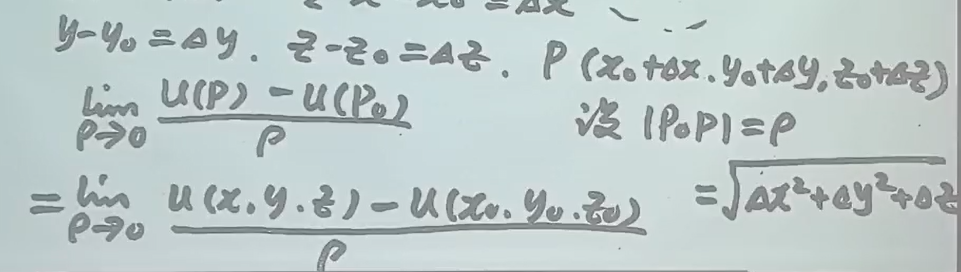 x-x₀=Δx
y-y₀=Δy. z-z₀=Δz. P(x₀+Δx.y₀+Δy,z₀+Δz)
lim ρ→0 (u(P)-u(P₀))/ρ 设 |P₀P|=ρ
=lim ρ→0 (u(x.y.z)-u(x₀.y₀.z₀))/ρ =√(Δx²+Δy²+Δz